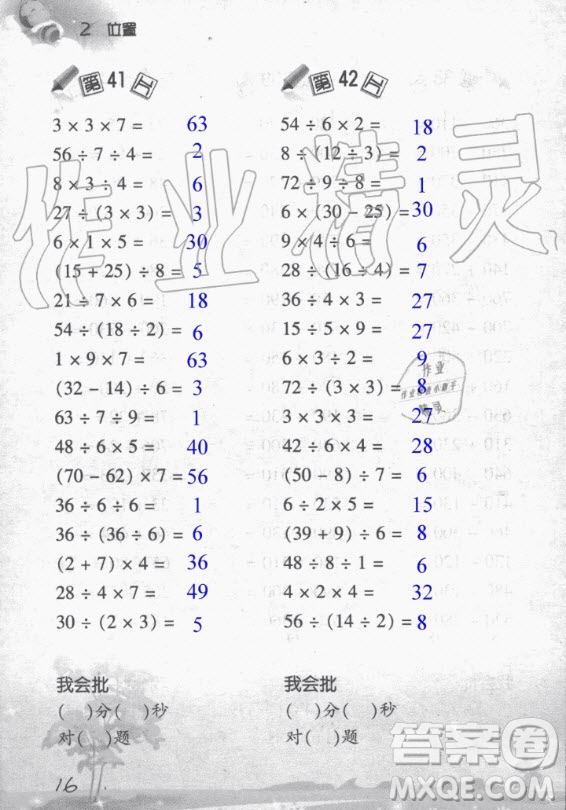 2 位置
第41天
3 × 3 × 7 = 63
56 ÷ 7 ÷ 4 = 2
8 × 3 ÷ 4 = 6
27 ÷ (3 × 3) = 3
6 × 1 × 5 = 30
(15 + 25) ÷ 8 = 5
21 ÷ 7 × 6 = 18
54 ÷ (18 ÷ 2) = 6
1 × 9 × 7 = 63
(32 - 14) ÷ 6 = 3
63 ÷ 7 ÷ 9 = 1
48 ÷ 6 × 5 = 40
(70 - 62) × 7 = 56
36 ÷ 6 ÷ 6 = 1
36 ÷ (36 ÷ 6) = 6
(2 + 7) × 4 = 36
28 ÷ 4 × 7 = 49
30 ÷ (2 × 3) = 5
我会批
( )分( )秒
对( )题
第42天
54 ÷ 6 × 2 = 18
8 ÷ (12 ÷ 3) = 2
72 ÷ 9 ÷ 8 = 1
6 × (30 - 25) = 30
9 × 4 ÷ 6 = 6
28 ÷ (16 ÷ 4) = 7
36 ÷ 4 × 3 = 27
15 ÷ 5 × 9 = 27
6 × 3 ÷ 2 = 9
72 ÷ (3 × 3) = 8
3 × 3 × 3 = 27
42 ÷ 6 × 4 = 28
(50 - 8) ÷ 7 = 6
6 ÷ 2 × 5 = 15
(39 + 9) ÷ 6 = 8
48 ÷ 8 ÷ 1 = 6
4 × 2 × 4 = 32
56 ÷ (14 ÷ 2) = 8
我会批
( )分( )秒
对( )题
16
作业精灵
作业
精灵
答案圈
MXQE.COM